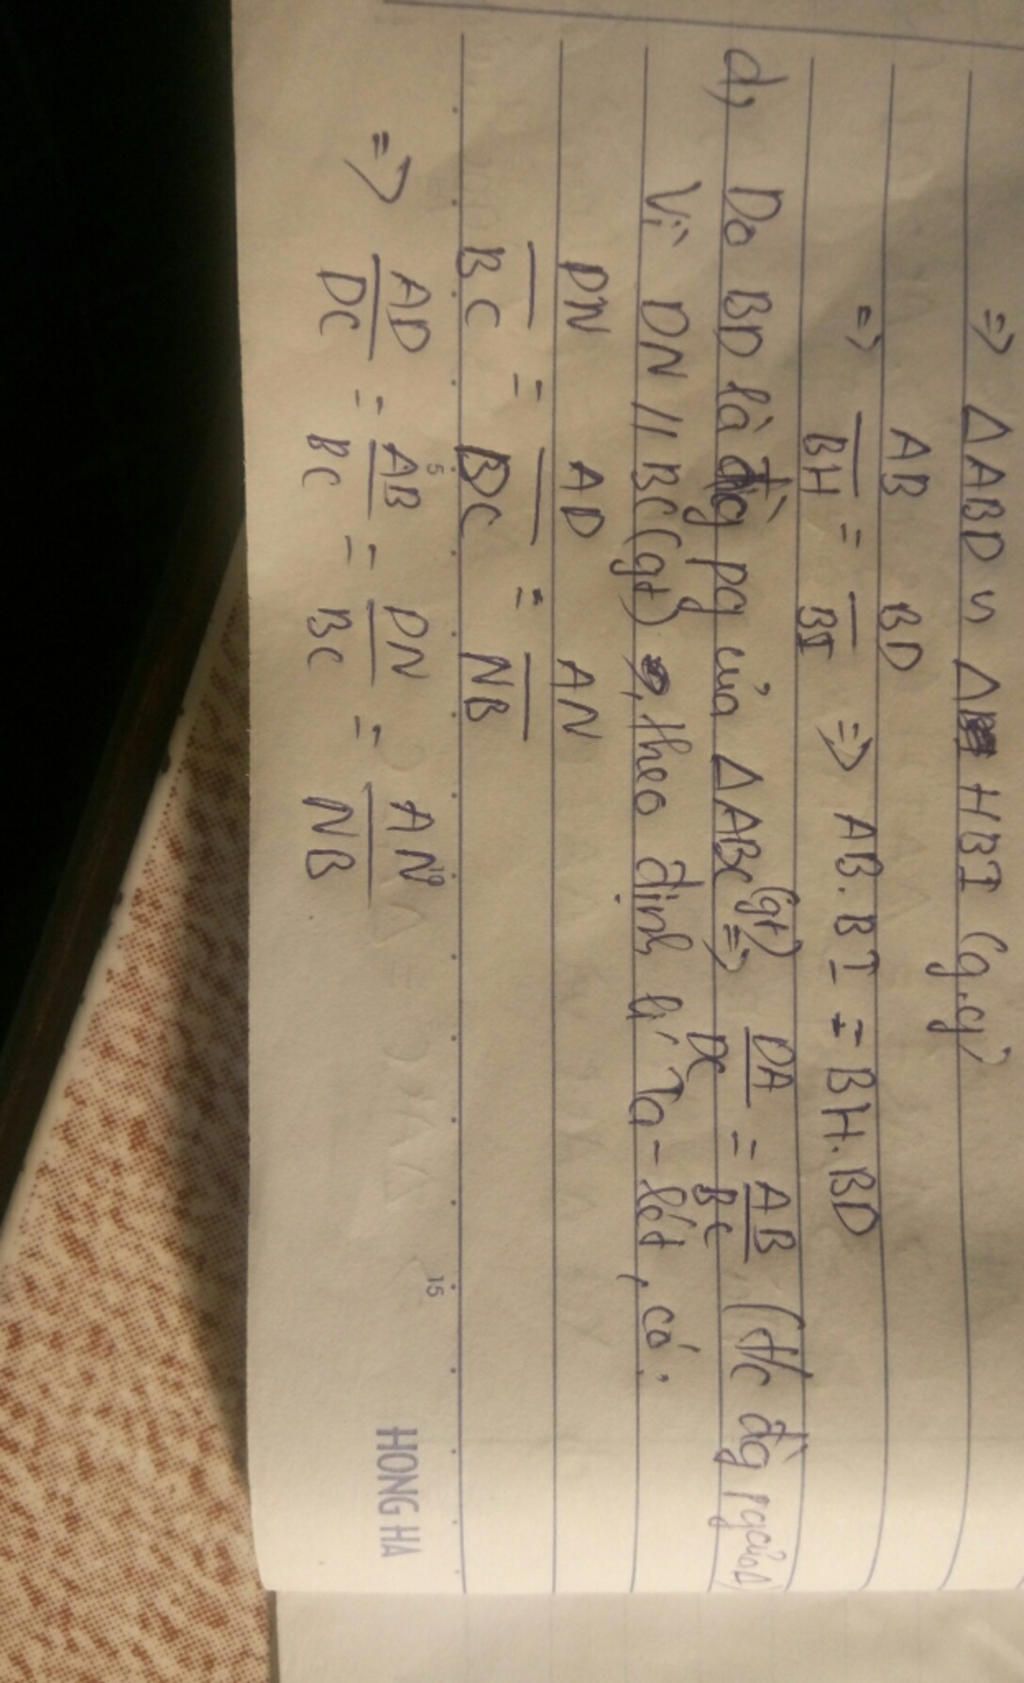 => Δ ABD ᔕ Δ HBI (g.g)
=> AB/BH = BD/BI => AB.BI = BH.BD
d, Do BD là đg pg của Δ ABC (gt) => DA/DC = AB/BC (t/c đg pg của Δ)
Vì DN // BC (gt), theo định lí Ta-lét, có:
DN/BC = AD/DC = AN/NB
=> AD/DC = AB/BC = DN/BC = AN/NB
5 10 15
HONG HA